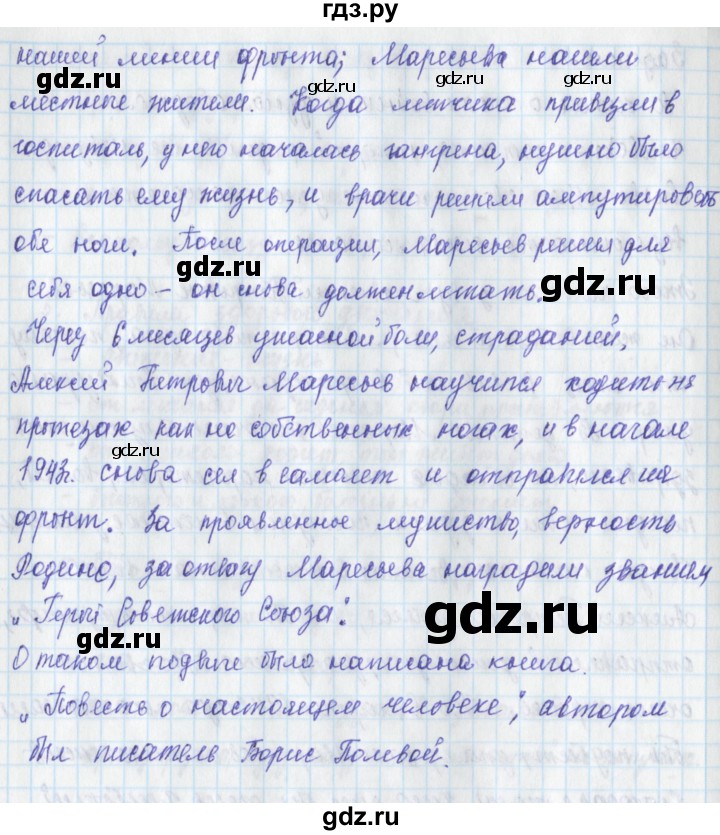 гдз.ру
нашей линии фронта; Маресьева нашли
местные жители. Когда летчика привезли в
госпиталь, у него началась гангрена, нужно было
спасать ему жизнь, и врачи решили ампутировать
обе ноги. После операции, Маресьев решил для
себя одно – он снова должен летать.
Через 6 месяцев ужасной боли, страданий,
Алексей Петрович Маресьев научился ходить на
протезах как на собственных ногах, и в начале
1943г. снова сел в самолет и отправился на
фронт. За проявленное мужество, верность
Родине, за отвагу Маресьева наградили званием
„Герой Советского Союза".
О таком подвиге была написана книга.
„Повесть о настоящем человеке", автором
был писатель Борис Полевой.
gdz.ru
gdz.ru
gdz.ru
gdz.ru
gdz.ru
gdz.ru
gdz.ru
gdz.ru
gdz.ru
gdz.ru
gdz.ru
gdz.ru
gdz.ru
gdz.ru